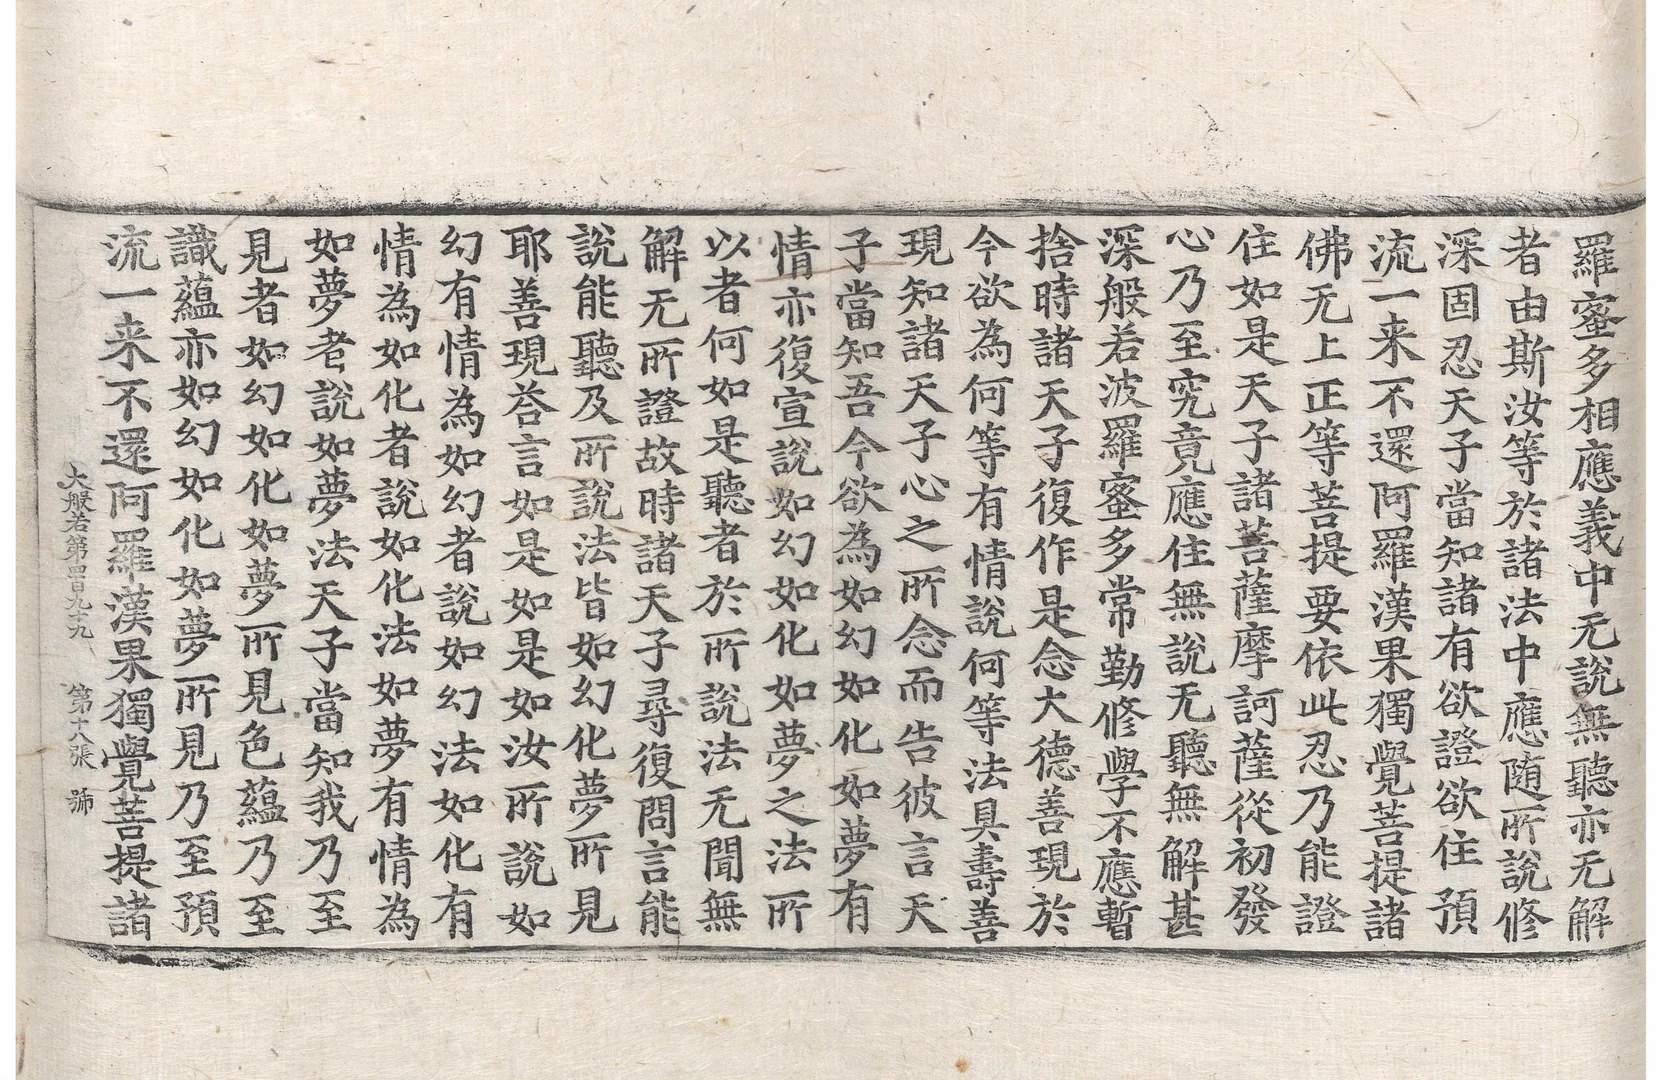 羅蜜多相應義中无說無聽亦无解
者由斯汝等於諸法中應随所說修
深固忍天子當知諸有欲證欲住預
流一来不還阿羅漢果獨覺菩提諸
佛无上正等菩提要依此忍乃能證
住如是天子諸菩薩摩訶薩從初發
心乃至究竟應住無說无聽無解甚
深般若波羅蜜多常勤修學不應暫
捨時諸天子復作是念大德善現於
今欲為何等有情說何等法具壽善
現知諸天子心之所念而告彼言天
子當知吾今欲為如幻如化如夢有
情亦復宣說如幻如化如夢之法所
以者何如是聽者於所說法无聞無
解无所證故時諸天子尋復問言能
說能聽及所說法皆如幻化夢所見
耶善現荅言如是如是如汝所說如
幻有情為如幻者說如幻法如化有
情為如化者說如化法如夢有情為
如夢者說如夢法天子當知我乃至
見者如幻如化如夢所見色蘊乃至
識蘊亦如幻如化如夢所見乃至預
流一来不還阿羅漢果獨覺菩提諸
大般若第四百九十九 第十八張 號